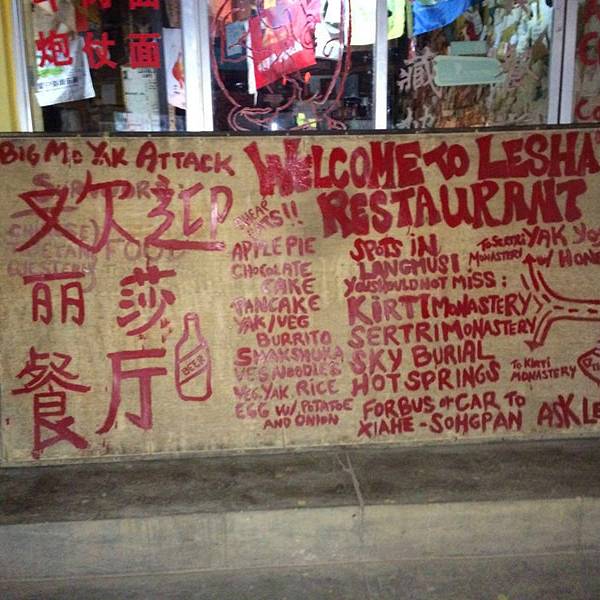 炮仗面
藏
BIG MC YAK ATTACK
欢迎
丽莎
餐厅
BEER
WELCOME TO LESHA'
RESTAURANT
CHEAP
EATS!!
APPLE PIE
CHOCOLATE
CAKE
PANCAKE
YAK/VEG
BURRITO
SHAKSHUKA
VEG NOODLES
VEG, YAK, RICE
EGG W/ POTATOE
AND ONION
SPOTS IN
LANGMUSI
YOU SHOULD NOT MISS:
KIRTI MONASTERY
SERTRI MONASTERY
SKY BURIAL
HOT SPRINGS
FOR BUS or CAR TO
XIAHE - SOHGPAN ASK LE
YAK YO
W/ HONE
TO SERTRI
MONASTERY
TO KIRTI
MONASTERY